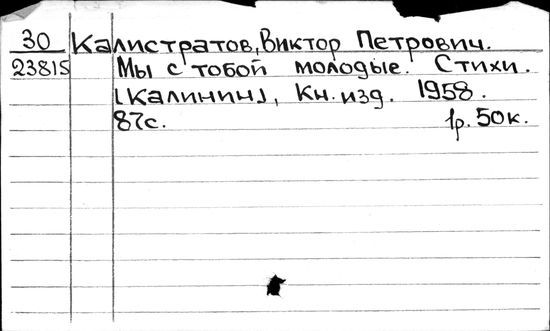 30 Калистратов, Виктор Петрович.
23815 Мы с тобой молодые. Стихи.
[Калинин], Кн. изд. 1958.
87с. 1р. 50к.